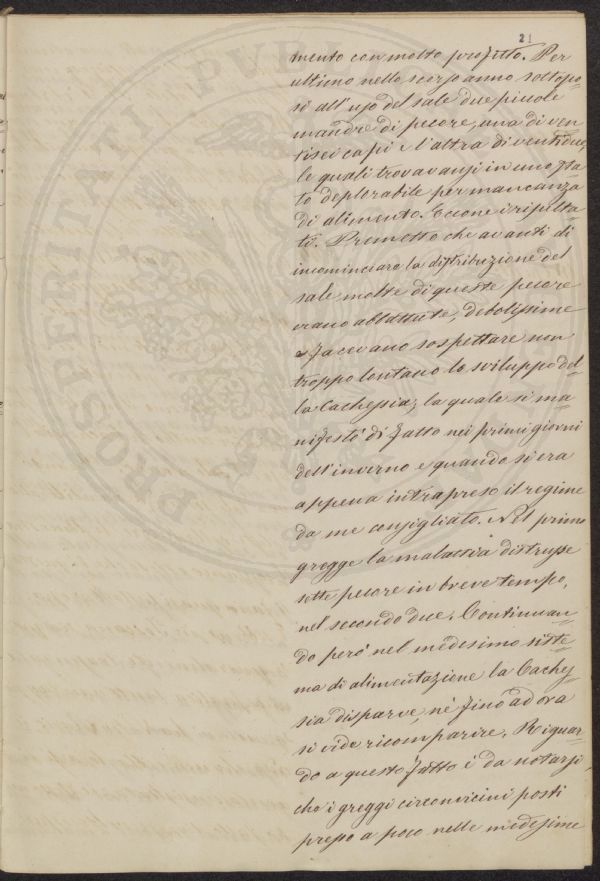 21
mento con molto profitto. Per
ultimo nello scorso anno sottopo=
si all'uso del sale due piccole
mandre di pecore, una di ven=
tisei capi e l'altra di ventidue,
le quali trovavansi in uno sta=
to deplorabile per mancanza
di alimento. Eccone i risulta=
ti. Premetto che avanti di
incominciare la distribuzione del
sale molte di queste pecore
erano abbattute, debolissime
e facevano sospettare non
troppo lontano lo sviluppo del=
la Cachessia; la quale si ma=
nifestò di fatto nei primi giorni
dell'inverno e quando si era
appena intrapreso il regime
da me consigliato. Nel primo
gregge la malattia distrusse
sette pecore in breve tempo,
nel secondo due. Continuan=
do però nel medesimo siste=
ma di alimentazione la Cachef=
sia disparve, nè fino ad ora
si vide ricomparire. Riguar=
do a questo fatto è da notarsi
che i greggi circonvicini posti
presso a poco nelle medesime
PROSPERITATI PVBL